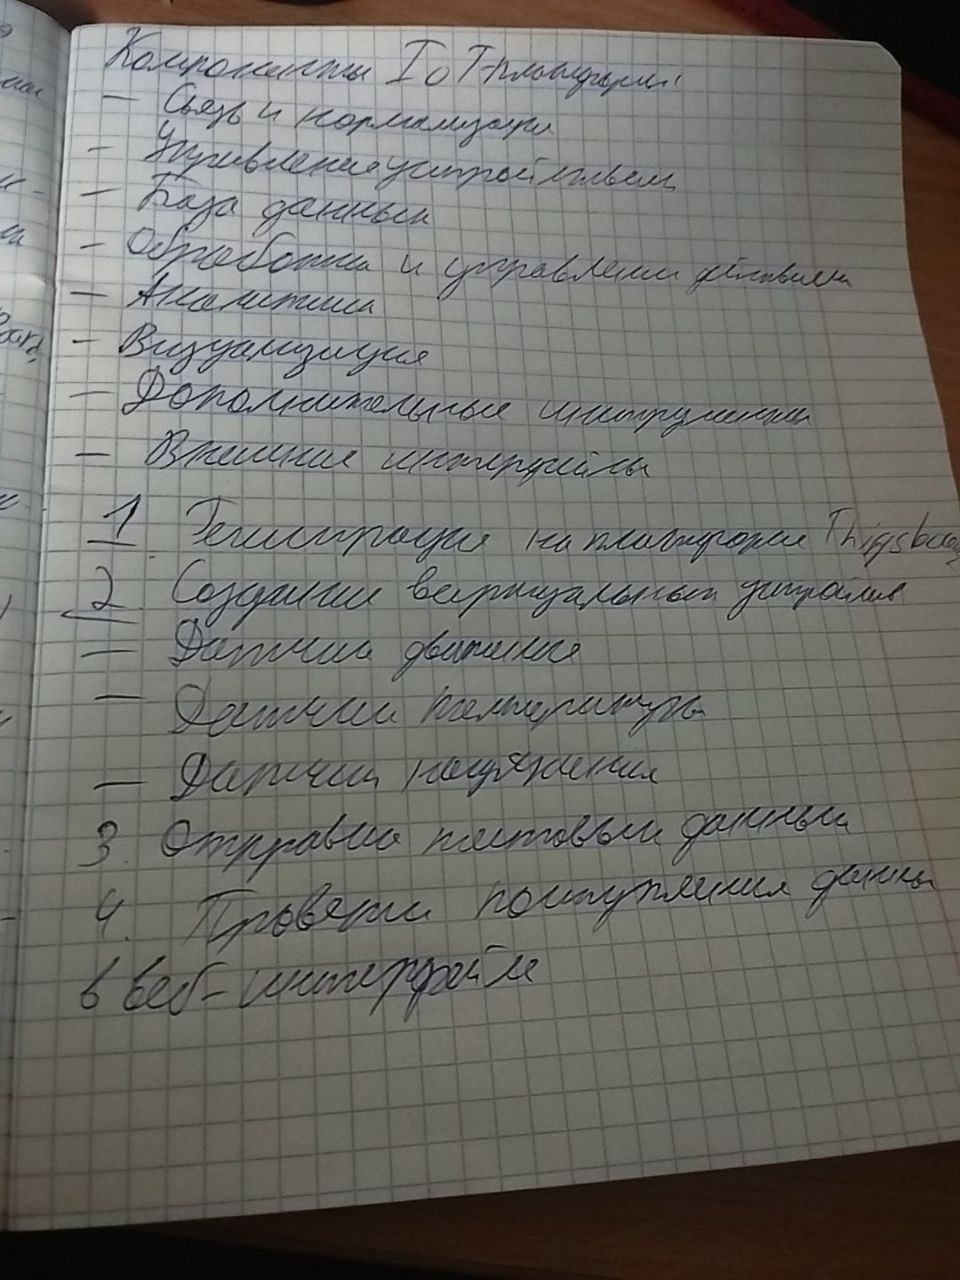 Компоненты IoT-платформы
- Связь и нормализация
- Управление устройствами
- База данных
- Обработка и управление действиями
- Аналитика
- Визуализация
- Дополнительные инструменты
- Внешние интерфейсы
1. Регистрация на платформе Thigsboard
2. Создание верицуальных устройств
- Датчик движения
- Датчик температуры
- Датчик напряжения
3. Отправка тестовых данных
4. Проверка поступления данных
в веб-интерфейсе